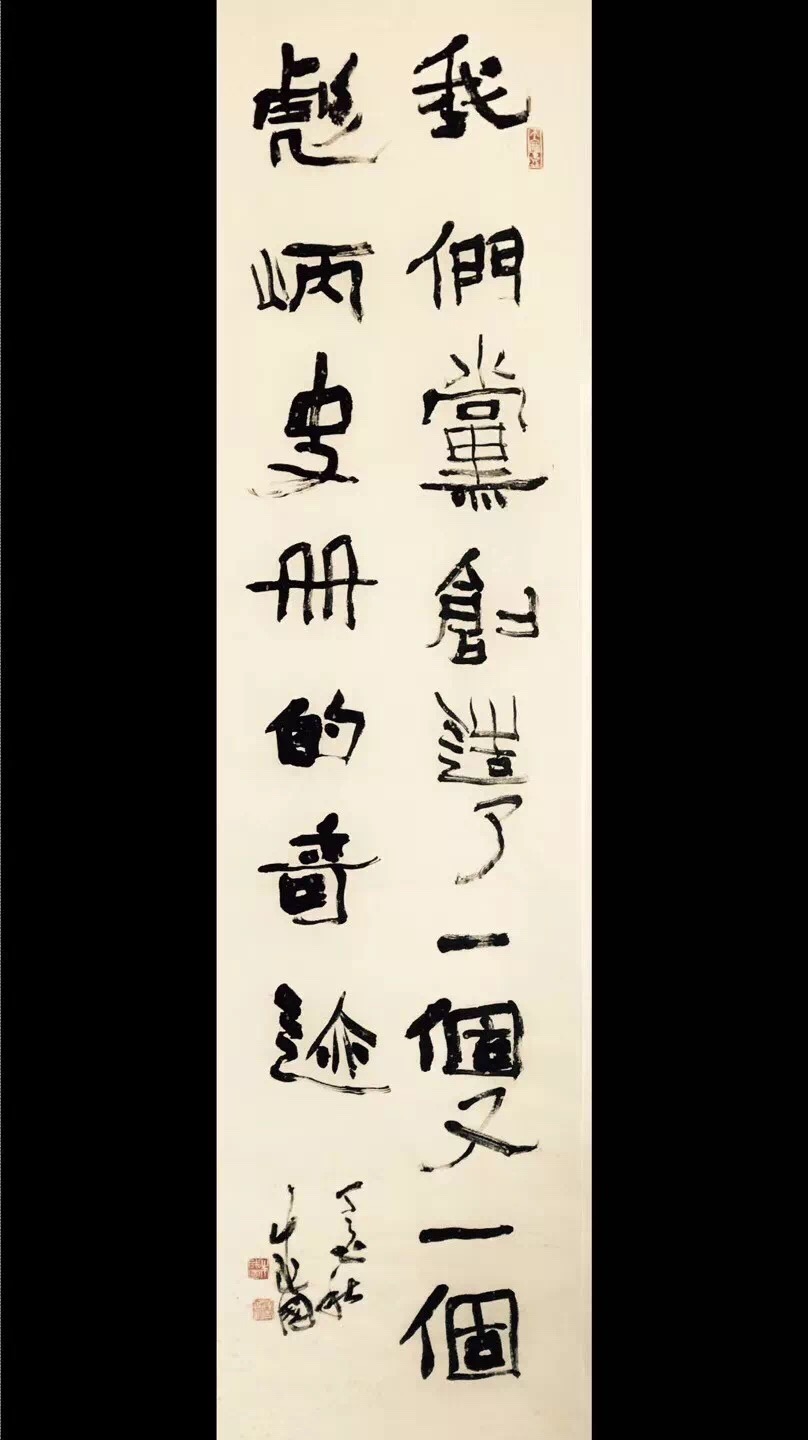 我們黨創造了一個又一個
彪炳史册的奇迹